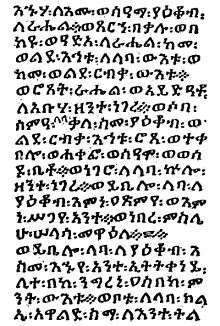 እኁሃ፡ለእሙ፡ወሰዓማ፡ያዕቆብ፡
ለራሔል፡፡ወጸርኀ፡በቃሉ፡ወበ
ከየ፡ለራሔል፡ከመ፡
ወልደ፡እኅቱ፡ለላባ፡ውእቱ፡ወ
ከመ፡ወልደ፡ርብቃ፡ውእቱ።
ወሮጸት፡ራሔል፡ወአይድዐቶ፡
ለአቡሃ፡ዘንተ፡ነገረ።ወሶበ፡
ሰምዐ፡ላባ፡ቃለ፡ስመ፡ያዕቆብ፡ው
ልደ፡ርብቃ፡እኅቱ፡ሮጸ፡ወተቀ
በሎ፡ወሐቀፎ፡ወሰዓሞ፡ወወሰ
ደ፡ቤቶ።ወነገሮ፡ለላባ፡ኵሎ፡
ዘንተ፡ነገረ።ወይቤሎ፡ላባ፡ለ
ያዕቆብ፡እምነ፡ዐጽምየ፡ወእም
ነ፡ሥጋየ፡አንተ።ወነበረ፡ምስሌ
ሁ፡ሠላሳ፡መዋዕለ።
ወይቤሎ፡ላባ፡ለያዕቆብ፡እ
ስመ፡እኁየ፡አንተ፡ኢትትቀነይ፡
ሊተ፡በከ፡ንግረኒ፡ዐስበከ፡ም
ንት፡ውእቱ።ወቦቱ፡ለላባ፡ክል
ኤ፡አዋልድ፡ስማ፡ለእንተ፡ትል